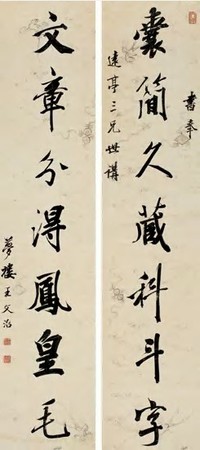 書奉
囊簡久藏科斗字
遠亭三兄世講
文章分得鳳皇毛
夢樓王文治